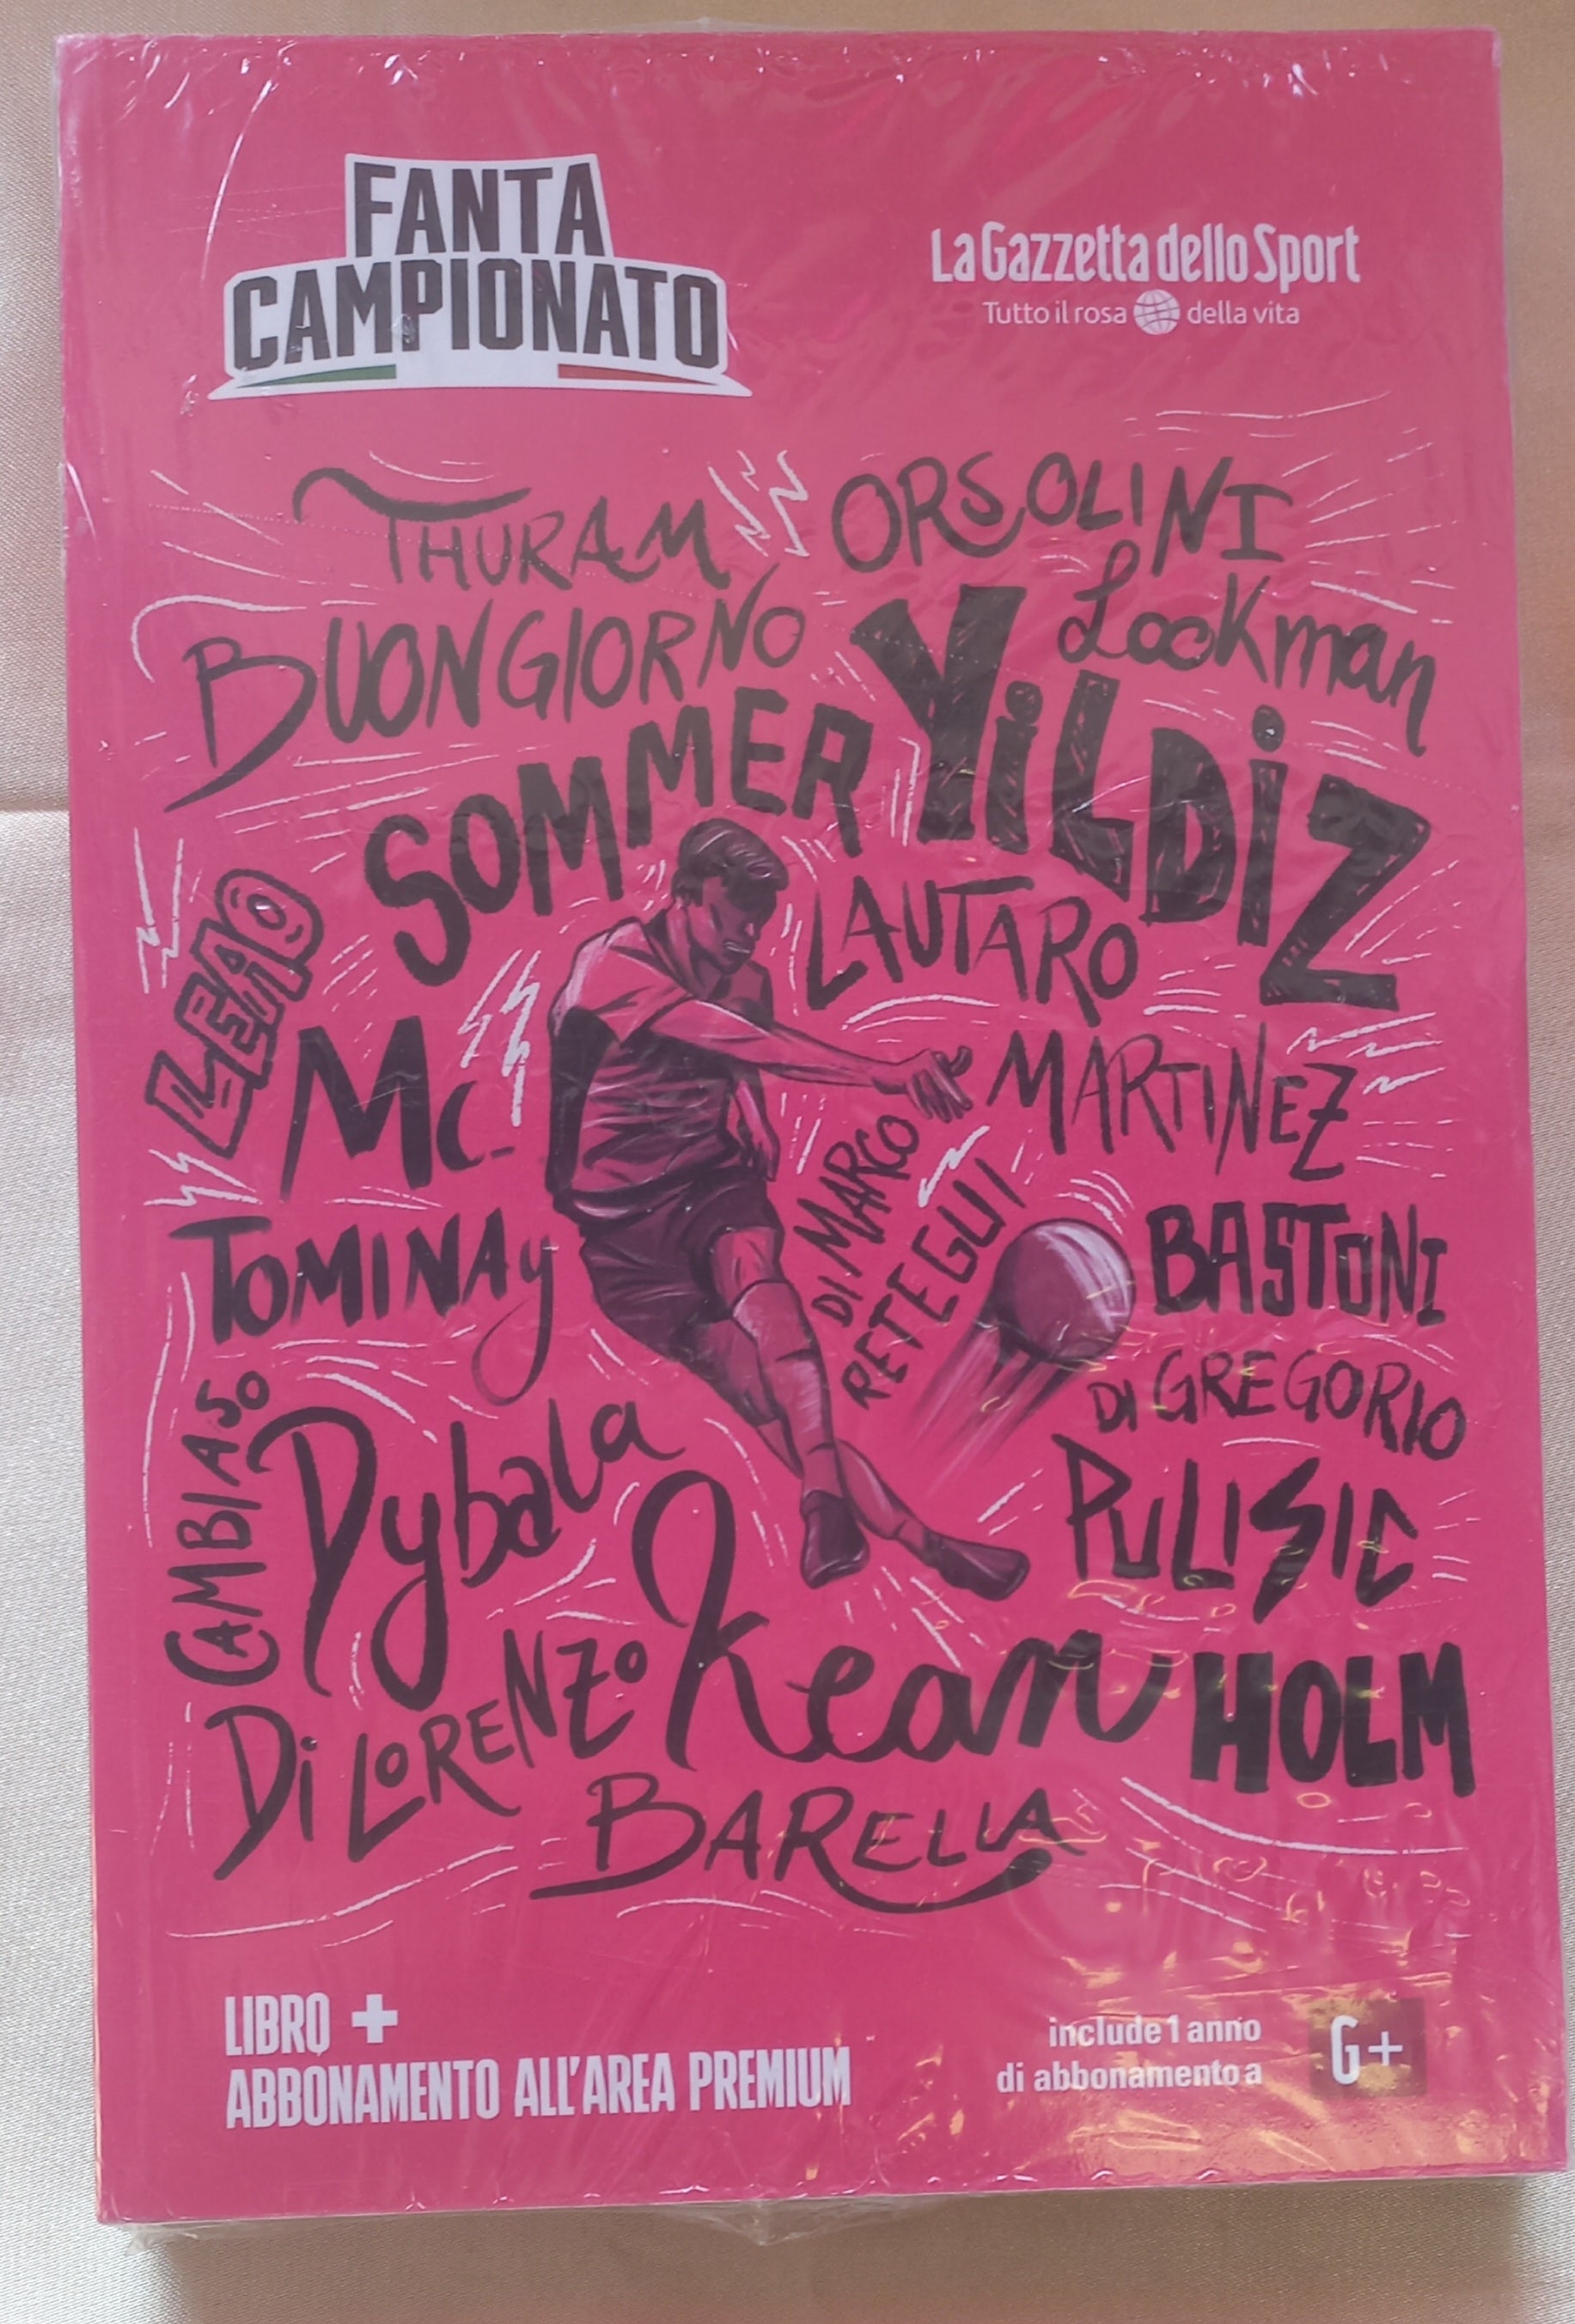 FANTA
CAMPIONATO
La Gazzetta dello Sport
Tutto il rosa della vita
THURAM
ORSOLINI
BUONGIORNO
Lookman
SOMMER
YiLDiZ
LEAO
LAUTARO
MARTINEZ
Mc-
TOMINAy
DI MARCO
RETEGUI
BASTONI
DI GREGORIO
CAMBIASO
Dybala
PULISIC
Kean
Di LORENZO
HOLM
BARELLA
LIBRO +
ABBONAMENTO ALL'AREA PREMIUM
include 1 anno
di abbonamento a
G+